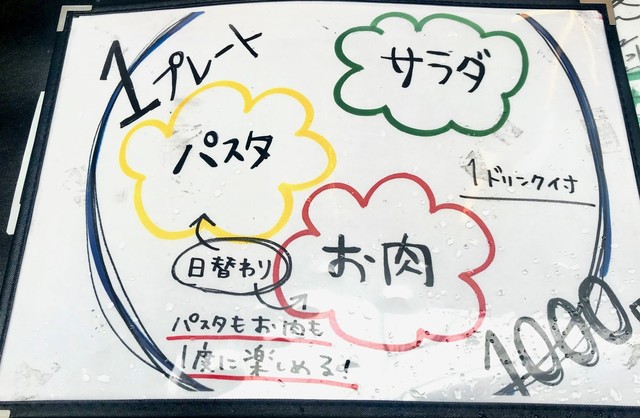 1プレート
サラダ
パスタ
1ドリンク付
お肉
日替わり
パスタもお肉も
1度に楽しめる!
1000